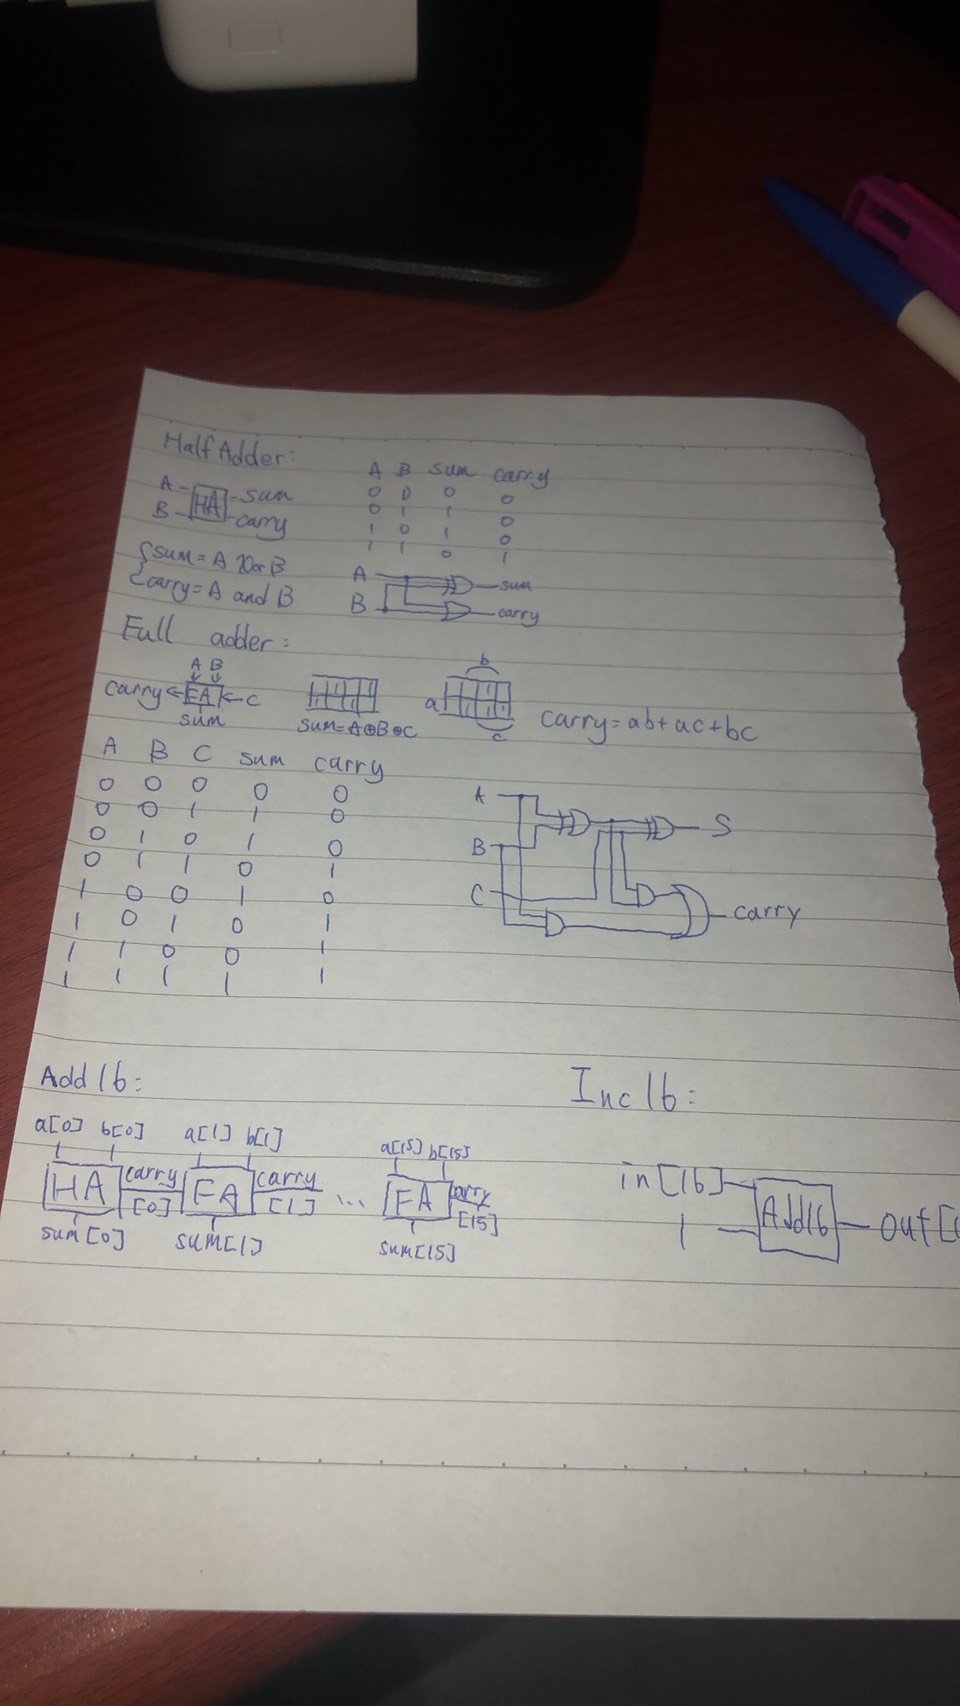 Half Adder:
A B sum carry
A HA sum
B carry
0 0 0 0
0 1 1 0
1 0 1 0
1 1 0 1
sum = A Xor B
carry = A and B
A sum
B carry
Full adder:
A B
carry FA C
sum
sum=A⊕B⊕C
b
a
c
carry=ab+ac+bc
A B C sum carry
0 0 0 0 0
0 0 1 1 0
0 1 0 1 0
0 1 1 0 1
1 0 0 1 0
1 0 1 0 1
1 1 0 0 1
1 1 1 1 1
A
B
C
S
carry
Add16:
a[0] b[0] a[1] b[1] a[15] b[15]
HA carry FA carry ... FA arry
[0] [1] [15]
sum[0] sum[1] sum[15]
Inc16:
in[16]
1
Add16 out[